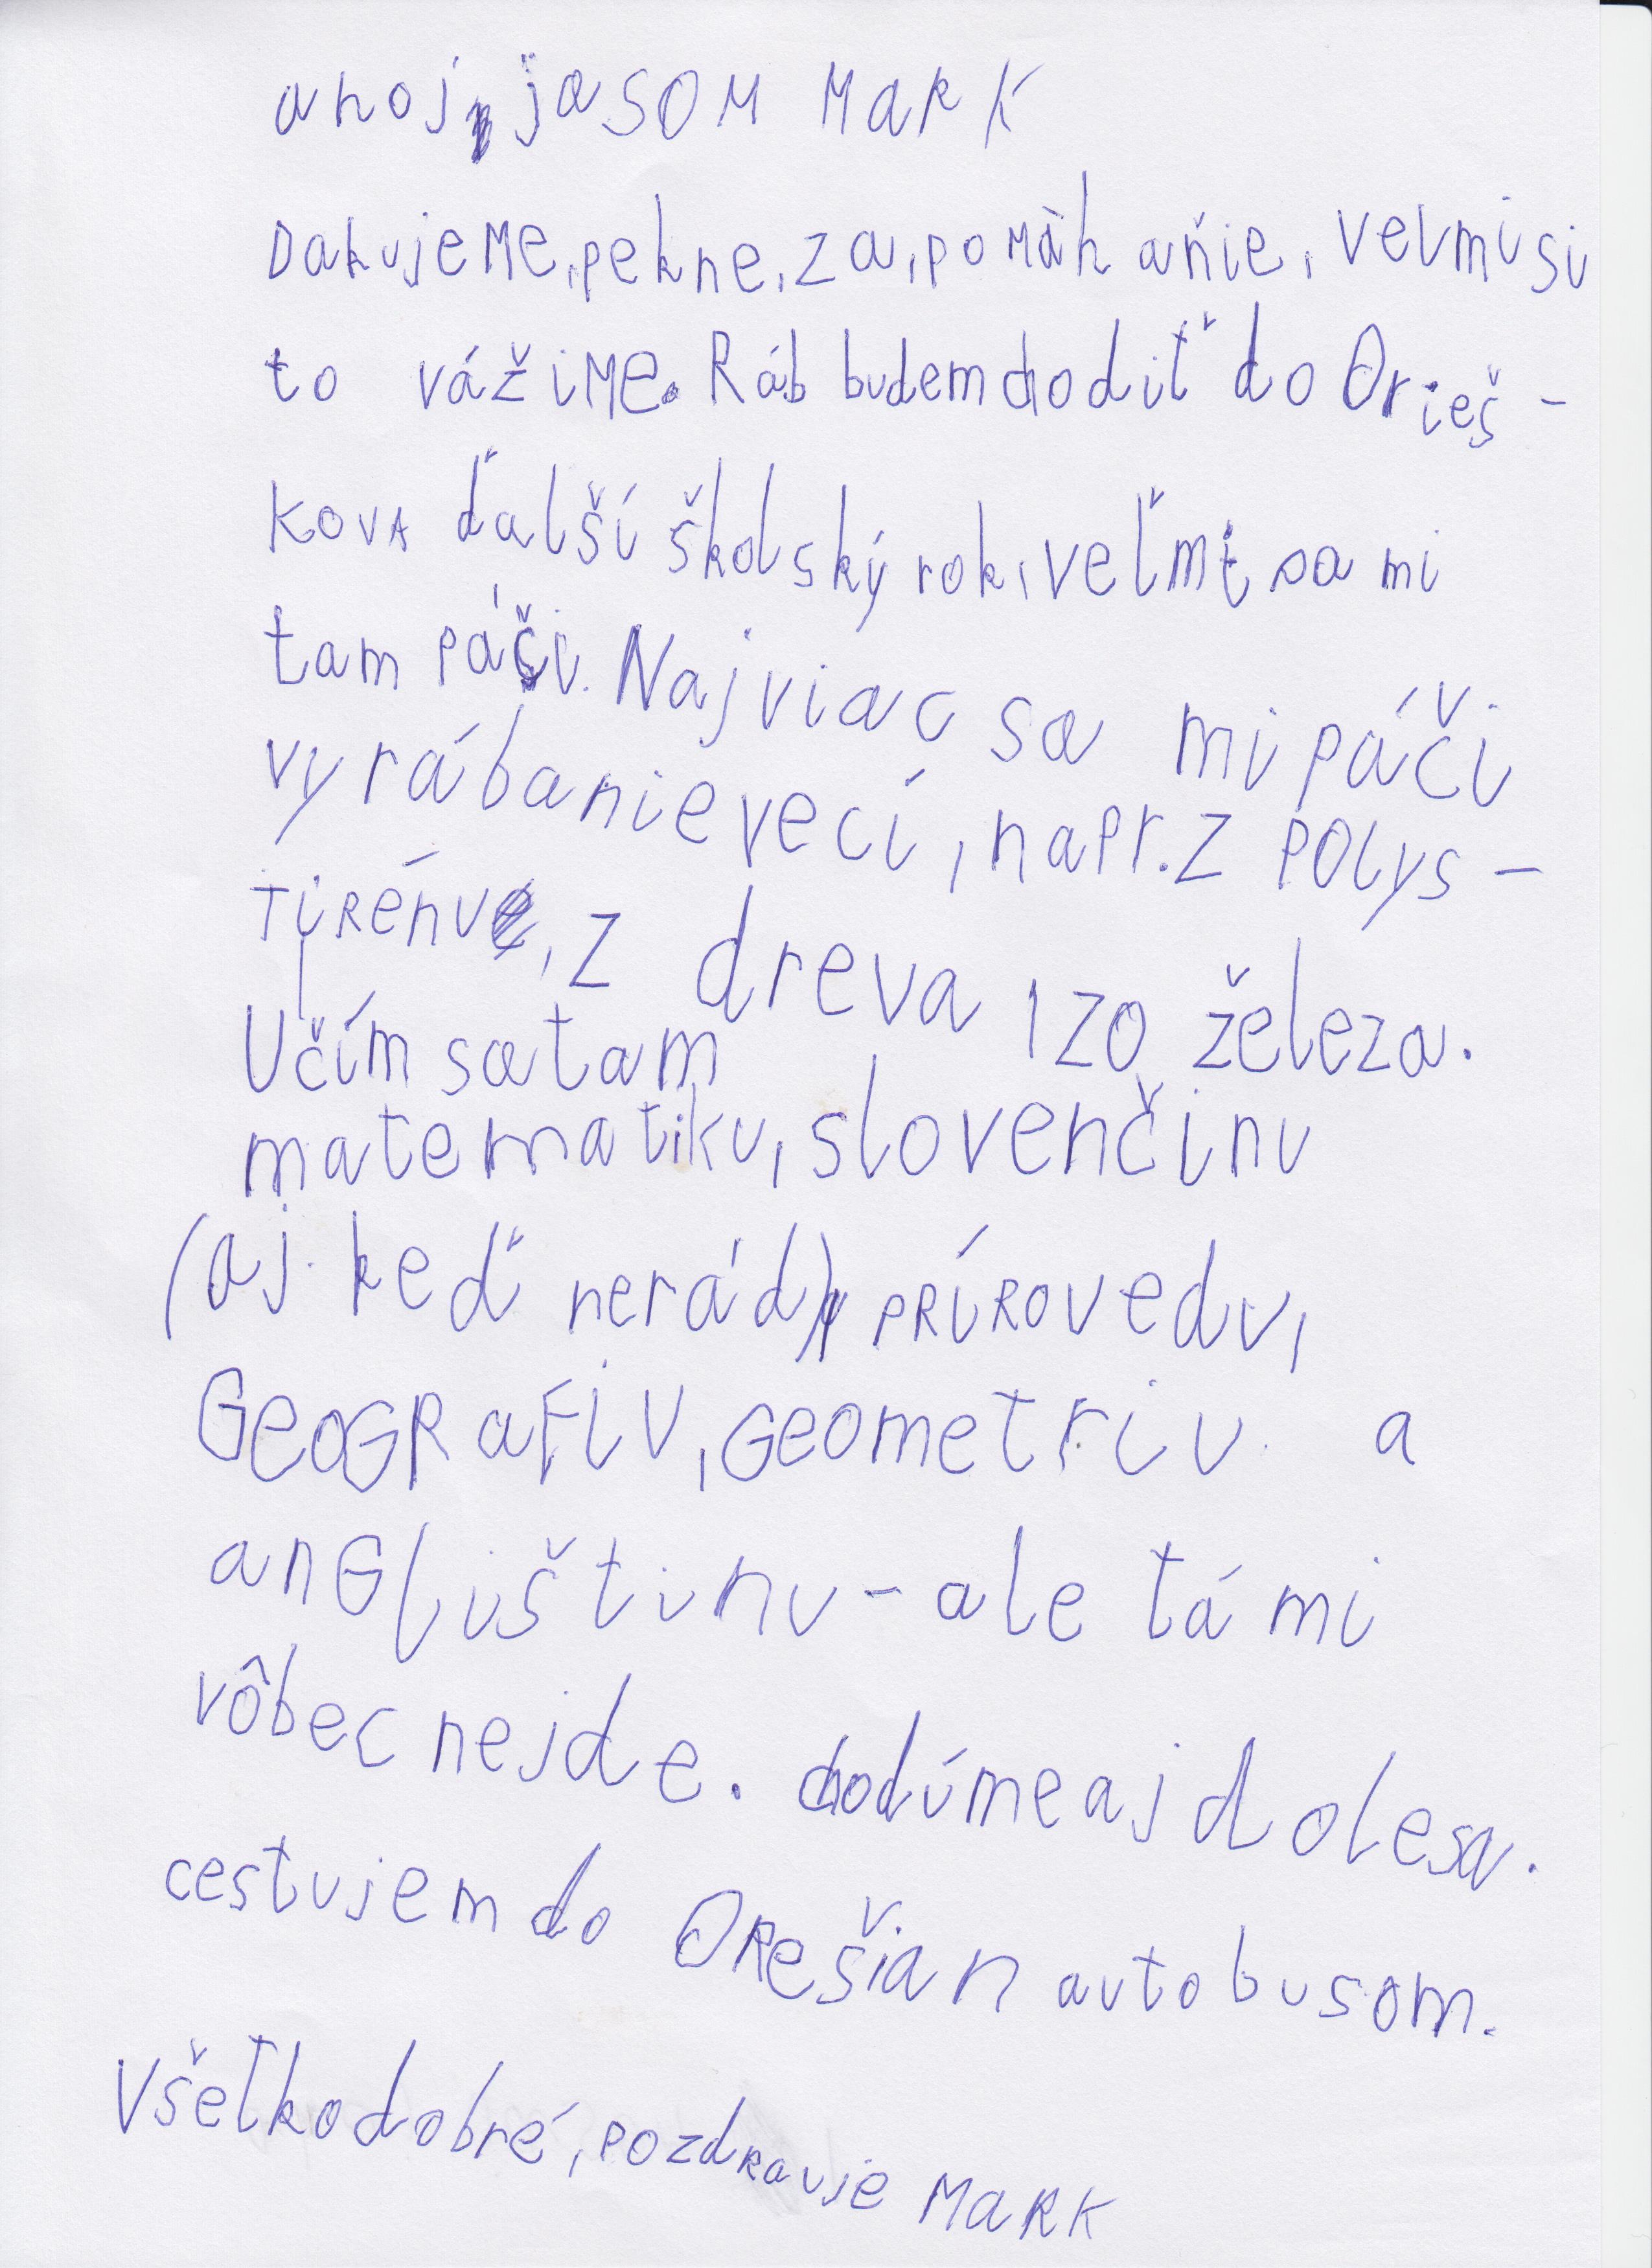 ahoj, ja SOM MARK
DakujeMe, pekne, za, poMàh aňie, velmi si
to vážiMe. Ráb budem chodiť do Orieš-
KOVA ďalší školský rok, veľmi sa mi
tam páči. Najviac sa mi páči
vyrábanie vecí, napr. z POlyS-
TIRénu, z dreva, zo železa.
Učím sa tam
matematiku, slovenčinu
(aj keď nerád) PRÍROVEdu,
GeoGRaFiu, Geometriu a
anGlištinu - ale tá mi
vôbec nejde. chodíme aj do lesa.
cestujem do ORešian autobusom.
Všetko dobré, pozdRavuje MARK